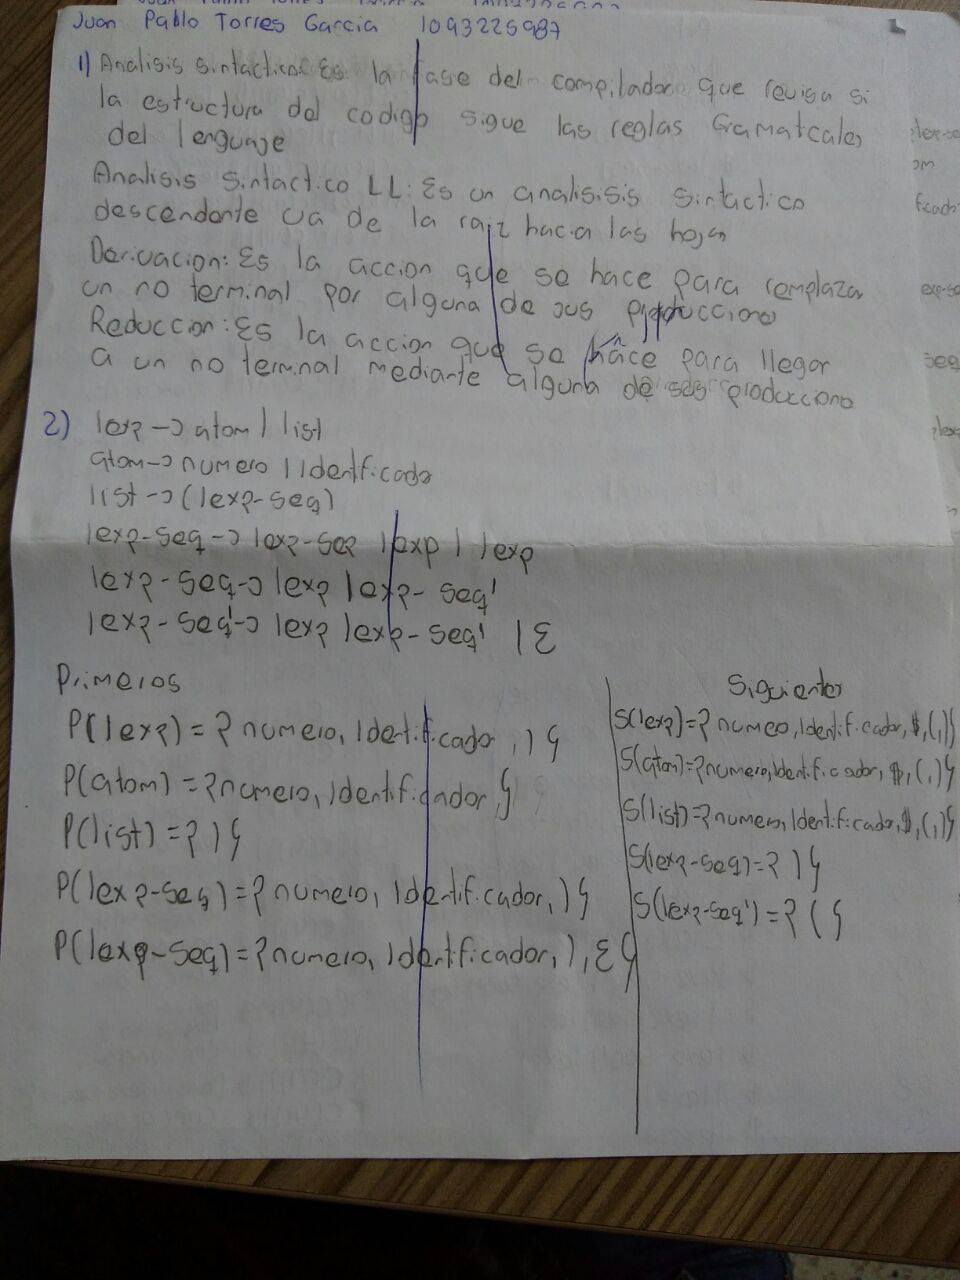 Juan Pablo Torres Garcia 1093225987
1) Analisis sintactico: Es la fase del compilador que revisa si
la estructura del codigo sigue las reglas Gramatcales
del lenguaje
Analisis sintactico LL: Es un analisisis sintactico
descendante va de la raiz hacia las hojas
Derivacion: Es la accion que se hace para remplazar
un no terminal por alguna de sus producciones
Reduccion: Es la accion que se hace para llegar
a un no terminal mediante alguna de sus producciones
2) lexp → atom | list
atom → numero | Identificador
list → (lexp-seq)
lexp-seq → lexp-seq lexp | lexp
lexp-seq → lexp lexp-seq'
lexp-seq' → lexp lexp-seq' | ε
Primeros
P(lexp) = { numero, Identificador, ) }
P(atom) = {numero, Identificador, }
P(list) = { ) }
P(lexp-seq) = { numero, Identificador, ) }
P(lexp-seq) = {numero, Identificador, ), ε }
Siguientes
S(lexp)={ numeo, Identificador, $, (, )}
S(atom)={numero, Identificador, $, (, )}
S(list)={numero, Identificador, $, (, )}
S(lexp-seq)={ ) }
S(lexp-seq')={ ( }